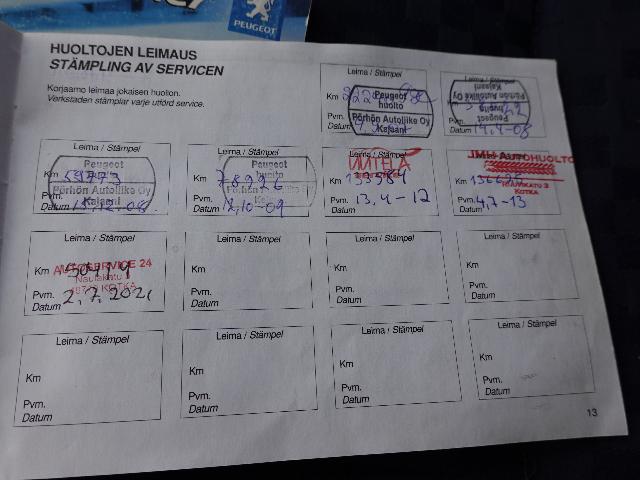 PEUGEOT
HUOLTOJEN LEIMAUS
STÄMPLING AV SERVICEN
Korjaamo leimaa jokaisen huollon.
Verkstaden stämplar varje utförd service.
Leima / Stämpel
Km
Peugeot
huolto
Pörhön Autoliike Oy
Kajaani
Pvm.
Datum
Leima / Stämpel
Km
Peugeot
huolto
Pörhön Autoliike Oy
Kajaani
Pvm.
Datum 14.4-08
Leima / Stämpel
Peugeot
Km 59773
Pörhön Autoliike Oy
Kajaani
Pvm.
Datum 15.12.08
Leima / Stämpel
Peugeot
huolto
Km 78996
Pörhön Autoliike Oy
Pvm.
Datum 12,10-09
Leima / Stämpel
Km 133584
Pvm. 13.4-12
Datum
Leima / Stämpel
JMH AUTOHUOLTO
Km 136625
KOTKA
Pvm.
Datum 4.7-13
Leima / Stämpel
Km
AUTOSERVICE 24
KOTKA
Pvm. 2.7.2021
Datum
Leima / Stämpel
Km
Pvm.
Datum
Leima / Stämpel
Km
Pvm.
Datum
Leima / Stämpel
Km
Pvm.
Datum
Leima / Stämpel
Km
Pvm.
Datum
Leima / Stämpel
Km
Pvm.
Datum
Leima / Stämpel
Km
Pvm.
Datum
Leima / Stämpel
Km
Pvm.
Datum
13